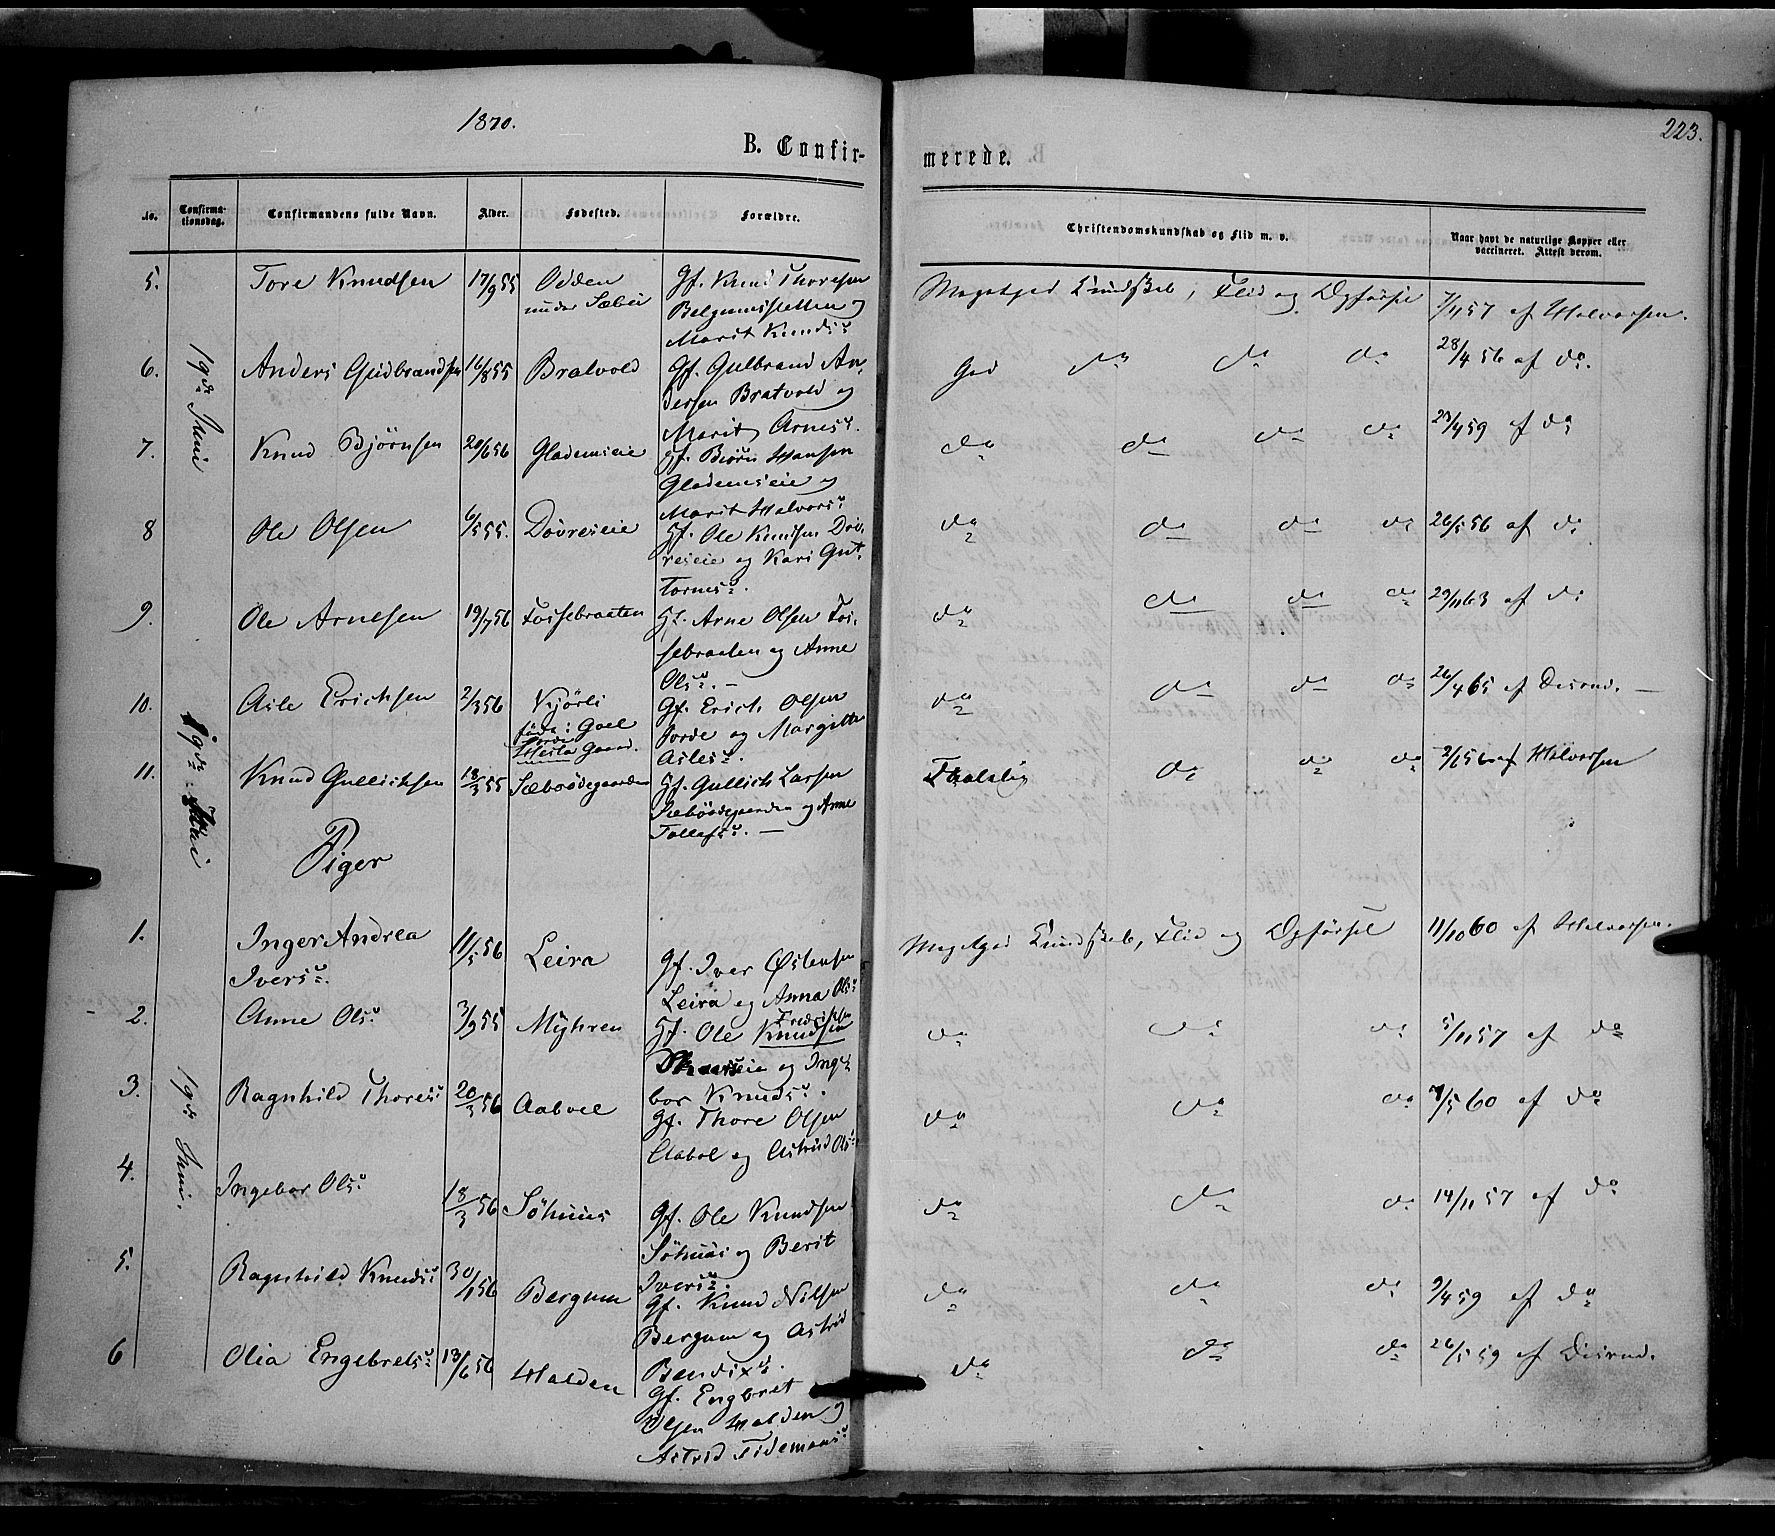 1870.
223.
B. Confir-
merede.
No.
Confirma-
tionsdag.
Confirmandens fulde Navn.
Alder.
Fødested.
Forældre.
Christendomskundskab og Flid m. v.
Naar havt de naturlige Kopper eller
vaccineret. Attest derom.
19de Juni
5. Tore Knudsen 17/9 55 Odden
under Sæbø
Gf. Knud Thoresen
og
Marit Knudsd
Megetgod Kundskab, Flid og Opførsel 7/11 57 af Halvorsen.
6. Anders Gudbrandsen 16/8 55 Bratvold Gf. Gulbrand An-
dersen Bratvold og
Marit Arnesd.
God do do do 28/4 56 af do.
7. Knud Bjørnsen 20/6 56 Gladenseie Gf. Biørn Hansen
Gladenseie og
Marit Halvorsd
do do do do 23/4 59 af do
8 Ole Olsen 6/5 55. Dovreseie Gf. Ole Knudsen Dov-
reseie og Kari Gut-
tormsd.
do do do do 26/5 56 af do
9. Ole Arnesen 19/7 56 Fossebraaten Gf. Arne Olsen Fos-
sebraaten og Anne
Olsd. –
do do do do 29/11 63 af do
19de Juni
10. Asle Erichsen 2/3 56 Kjørli
født i Goel
Hesla Gaard.
Gf. Erich Olsen
Jorde og Margitte
Aslesd.
do do do do 26/4 65 af Disrud. –
11. Knud Gullichsen 18/3 55 Sæbødegaarden Gf. Gullich Larsen
Sæbødegaarden og Anne
Tollefsd. –
Taalelig do do do 2/6 56 af Halvorsen
Piger
19de Juni.
1. Inger Andrea
Iversd. 11/5 56 Leira Gf. Iver Østensen
Leira og Anna Olsd
Megetgod Kundskab, Flid og Opførsel 11/10 60 af Halvorsen.
2. Anne Olsd 3/9 55 Myhren Gf. Ole Knudsen
Fredriksen
og Inge-
bor Knudsd.
do do do 5/11 57 af do
3. Ragnhild Thoresd 20/3 56 Aabøel Gf. Thore Olsen
Aabøl og Astrid Olsd
do do do 7/5 60 af do
4. Ingebor Olsd 18/3 56 Søhuus Gf. Ole Knudsen
Søhuus og Berit
Iversd.
do do do 14/11 57 af do
5. Ragnhild Knudsd 30/1 56 Bergum Gf. Knud Nilsen
Bergum og Astrid
Bendixd.
do do do 9/4 59 af do
6 Olia Engebretsd 13/6 56 Halden Gf. Engbret
Olsen Halden og
Astrid Tidemansd
do do do 26/5 59 af Disrud.